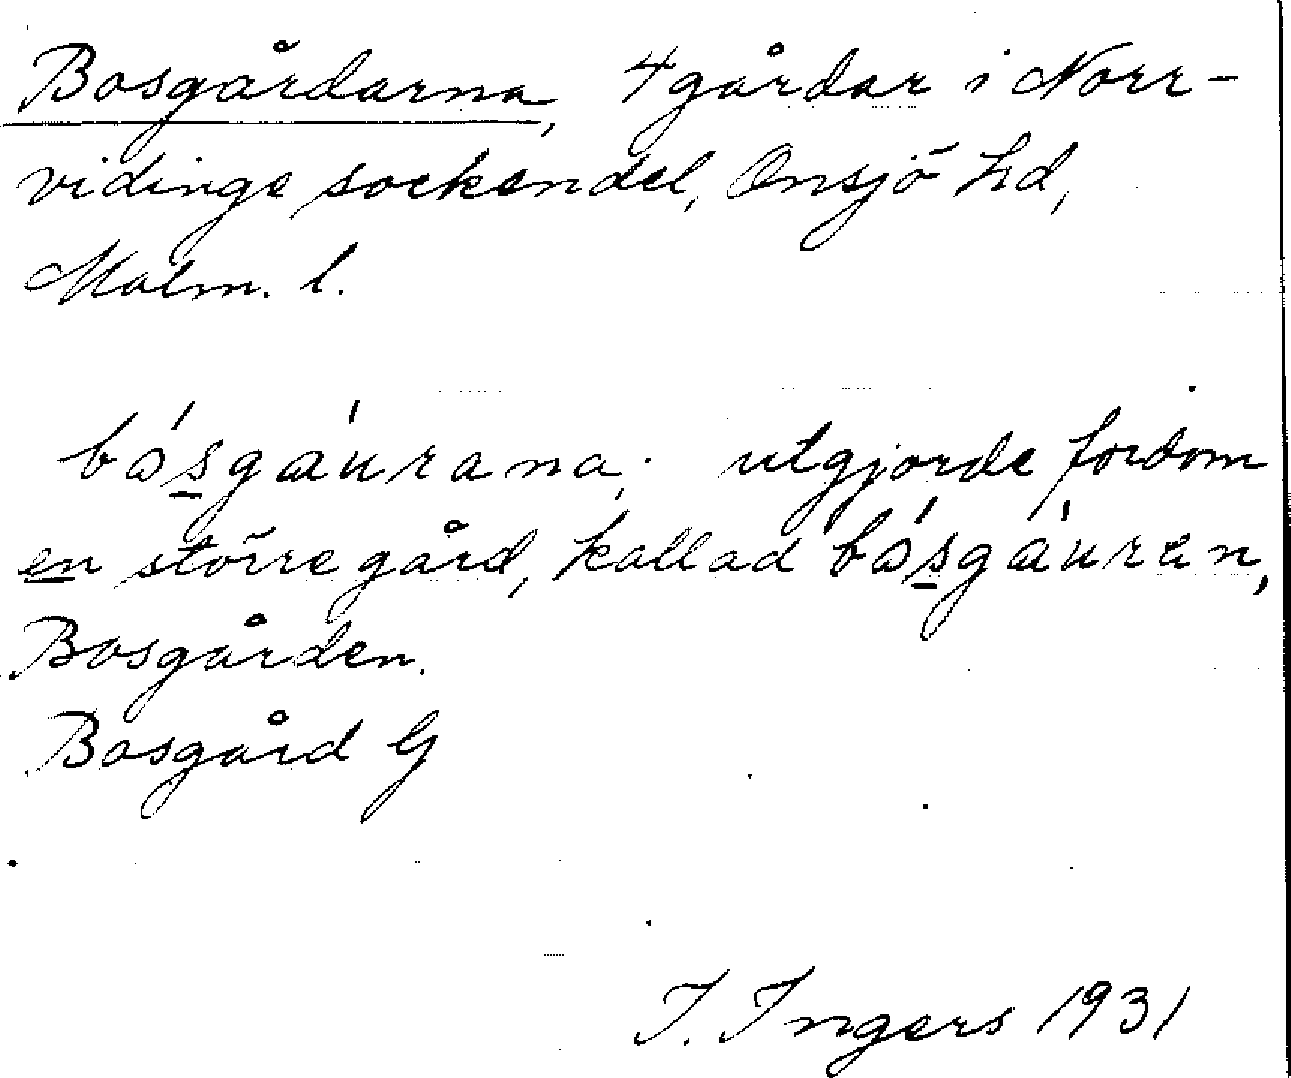 Bosgårdarna, 4 gårdar i Norr-
vidinge sockendel, Onsjö hd,
Malm. l.
bósgáurana; utgjorde fordom
en större gård, kallad bósgáuren,
Bosgården.
Bosgård G
I. Ingers 1931